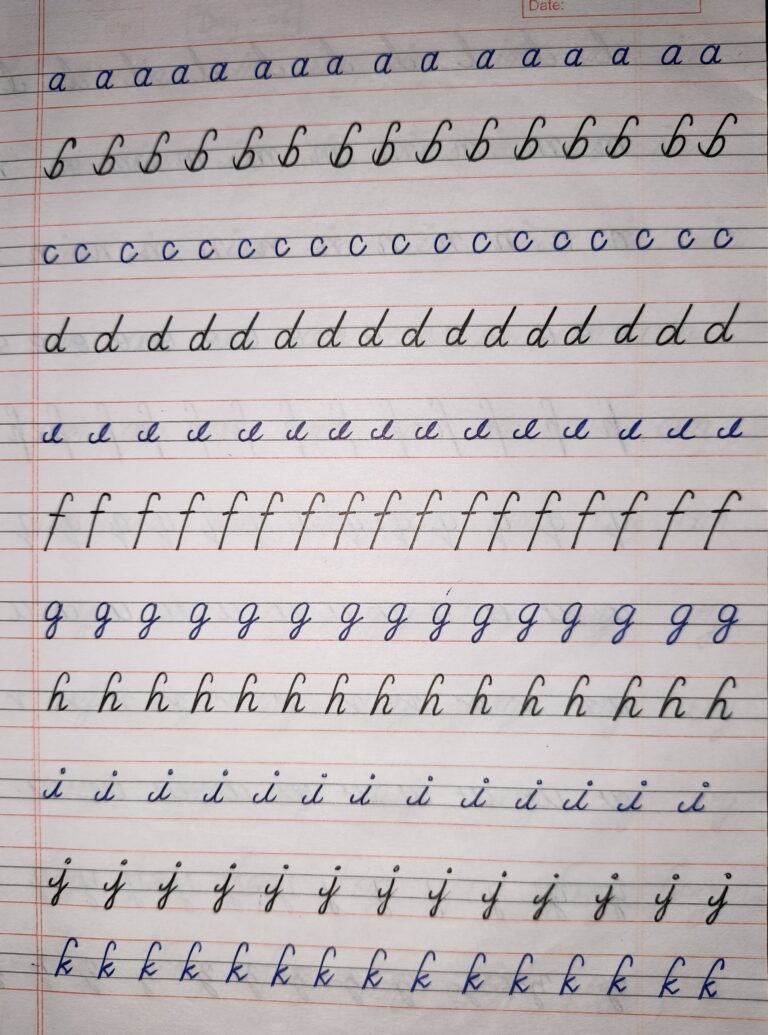 Date:
a a a a a a a a a a a a a a a a
b b b b b b b b b b b b b b b
c c c c c c c c c c c c c c c c c c
d d d d d d d d d d d d d d d d
e e e e e e e e e e e e e e e
f f f f f f f f f f f f f f f f f
g g g g g g g g g g g g g g g
h h h h h h h h h h h h h h h
i i i i i i i i i i i i i
j j j j j j j j j j j j j
k k k k k k k k k k k k k k k